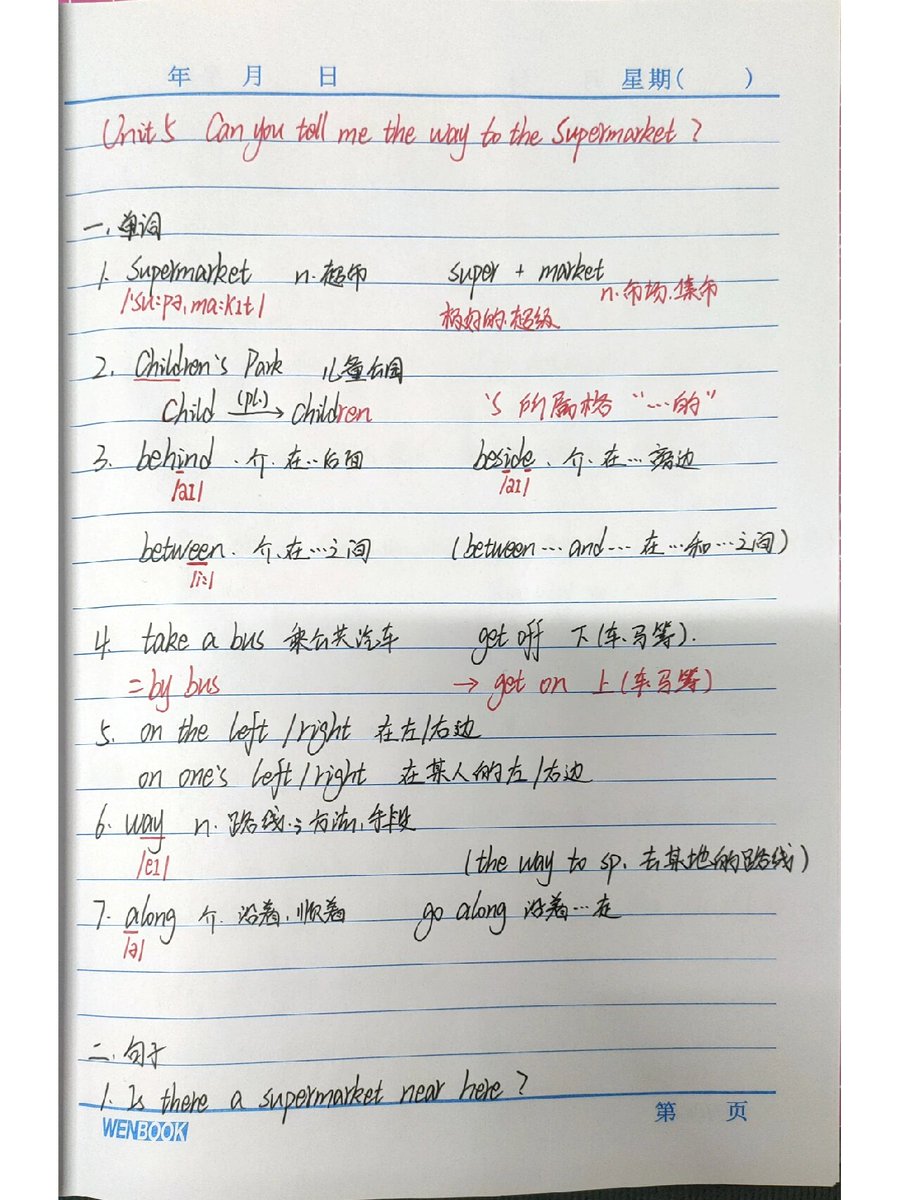 年 月 日 星期( )
Unit 5 Can you tell me the way to the Supermarket ?
一、单词
1. Supermarket n. 超市 super + market
/'su:pə,ma:kɪt/ 极好的.超级 n.市场.集市
2. Children's Park 儿童公园
Child (pl.)→ children 's 所属格 "…的"
3. behind . 介. 在…后面 beside . 介. 在…旁边
/aɪ/ /aɪ/
between. 介.在…之间 (between … and … 在…和…之间)
/i:/
4. take a bus 乘公共汽车 get off 下(车.马等).
=by bus → get on 上(车.马等)
5. on the left /right 在左/右边
on one's left /right 在某人的左/右边
6. way n. 路线.; 方法,手段
/eɪ/ (the way to sp. 去某地的路线)
7. along 介. 沿着.顺着 go along 沿着…走
/ə/
二.句子
1. Is there a supermarket near here ?
第 页
WENBOOK